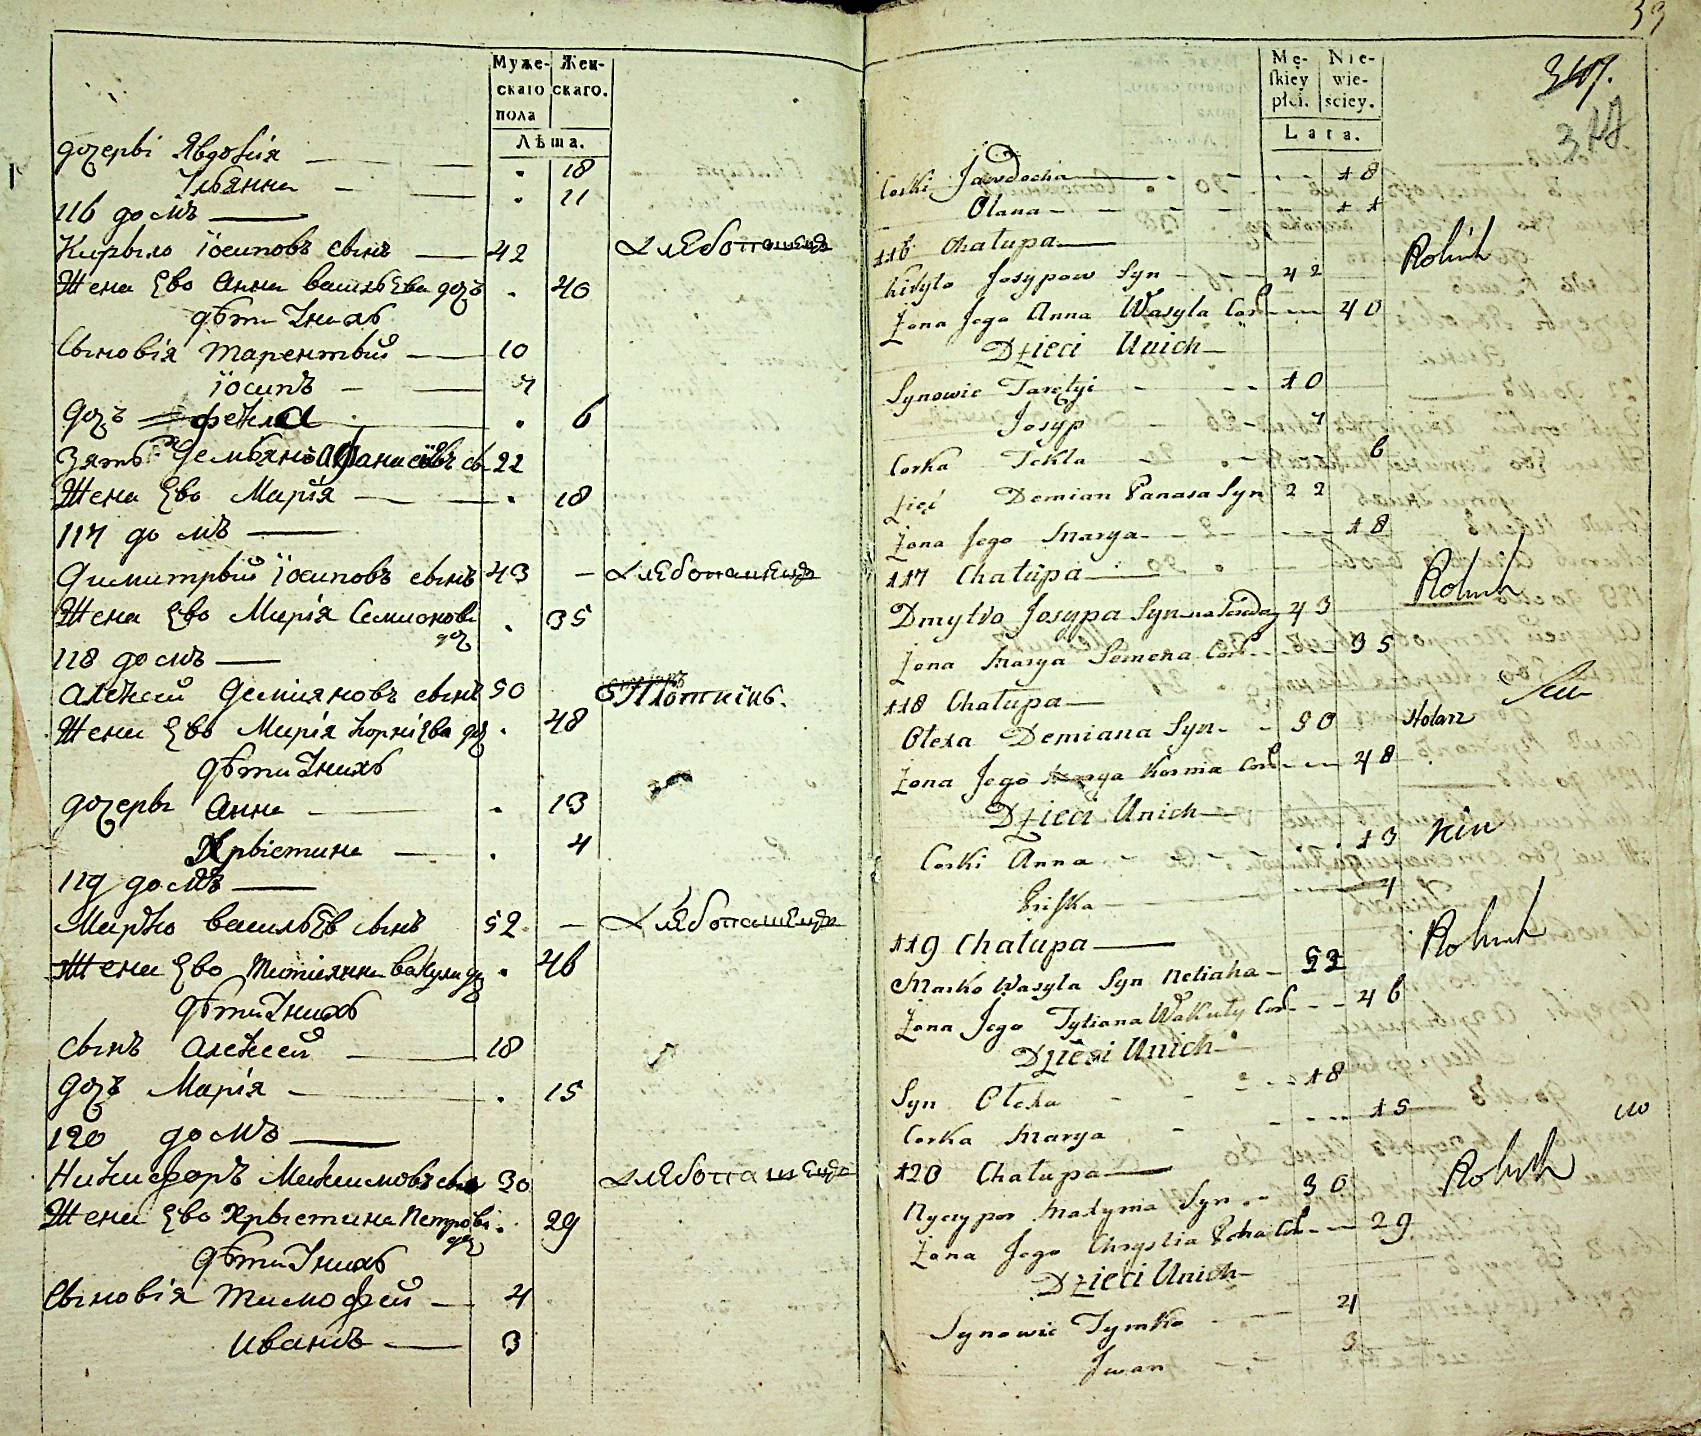 Муже-скаго пола
Жен-скаго.
Лѣта.
дочерві Явдокія — . 18
Ульянна — . 11
116 домъ
Кирыло Іосиповъ сынъ — 42 хлѣбопашецъ
Жена Ево Анна васильЕва дочъ . 40
дѣти Уних
Сыновія Тарентый — 10
Іосипъ — 7
дочъ Фекла . 6
Зять Демьянъ Афанасіевъ сы 22
Жена Ево Марія — . 18
117 домъ
Димитрый Іосиповъ сынъ 43 — хлѣбопашецъ
Жена Ево Марія Семионова доч . 35
118 домъ
Алексей Демияновъ сынъ 50 Плоткінъ.
Жена Ево Марія Корніева доч . 48
дѣти Уних
дочерві Анна — . 13
Хрыстина — . 4
119 домъ
Марко васильЕв сынъ 52 — хлѣбопашецъ
Жена Ево Татіянна Вакули доч . 46
дѣти Уних
Сынъ Алексей — 18
дочъ Марія — . 15
120 домъ
Никифоръ Максимовъ сын 30 хлѣбопашецъ
Жена Ево Хрыстина Петрова доч . 29
дѣти Уних
Сыновія Тимофей — 4
Иванъ — 3
39
347.
Mę-skiey płci.
Nie-wie-sciey.
Lata.
Corki Jawdocha — 18
Olana — 11
116 Chałupa
Kiryło Josypow Syn — 42 Rolnik
Zona Jego Anna Wasyla Cor — 40
Dzieci Unich
Synowie Taretyi — 10
Josyp — 7
Corka Tekla — 6
Zięć Demian Panasa Syn 22
Zona Jego Marya — 18
117 Chałupa Rolnik
Dmytro Josypa Syn 43
Zona Marya Semena Cor — 35
118 Chałupa
Olexa Demiana Syn — 50
Zona Jego Marya Kornia Cor — 48
Dzieci Unich
Corki Anna — 13
Hrißka — 4
119 Chałupa Rolnik
Marko Wasyla Syn Netiaha — 52
Zona Jego Tytiana Wakuły Cor — 46
Dzieci Unich
Syn Olexa — 18
Corka Marya — 15
120 Chałupa Rolnik
Nyczypor Maxyma Syn — 30
Zona Jego Chrystia Petra Cor — 29
Dzieci Unich
Synowie Tymko — 4
Jwan — 3